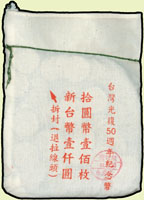 台灣光復50週年紀念幣
拾圓幣壹佰枚
新台幣壹仟圓
拆封(逕拉線頭)